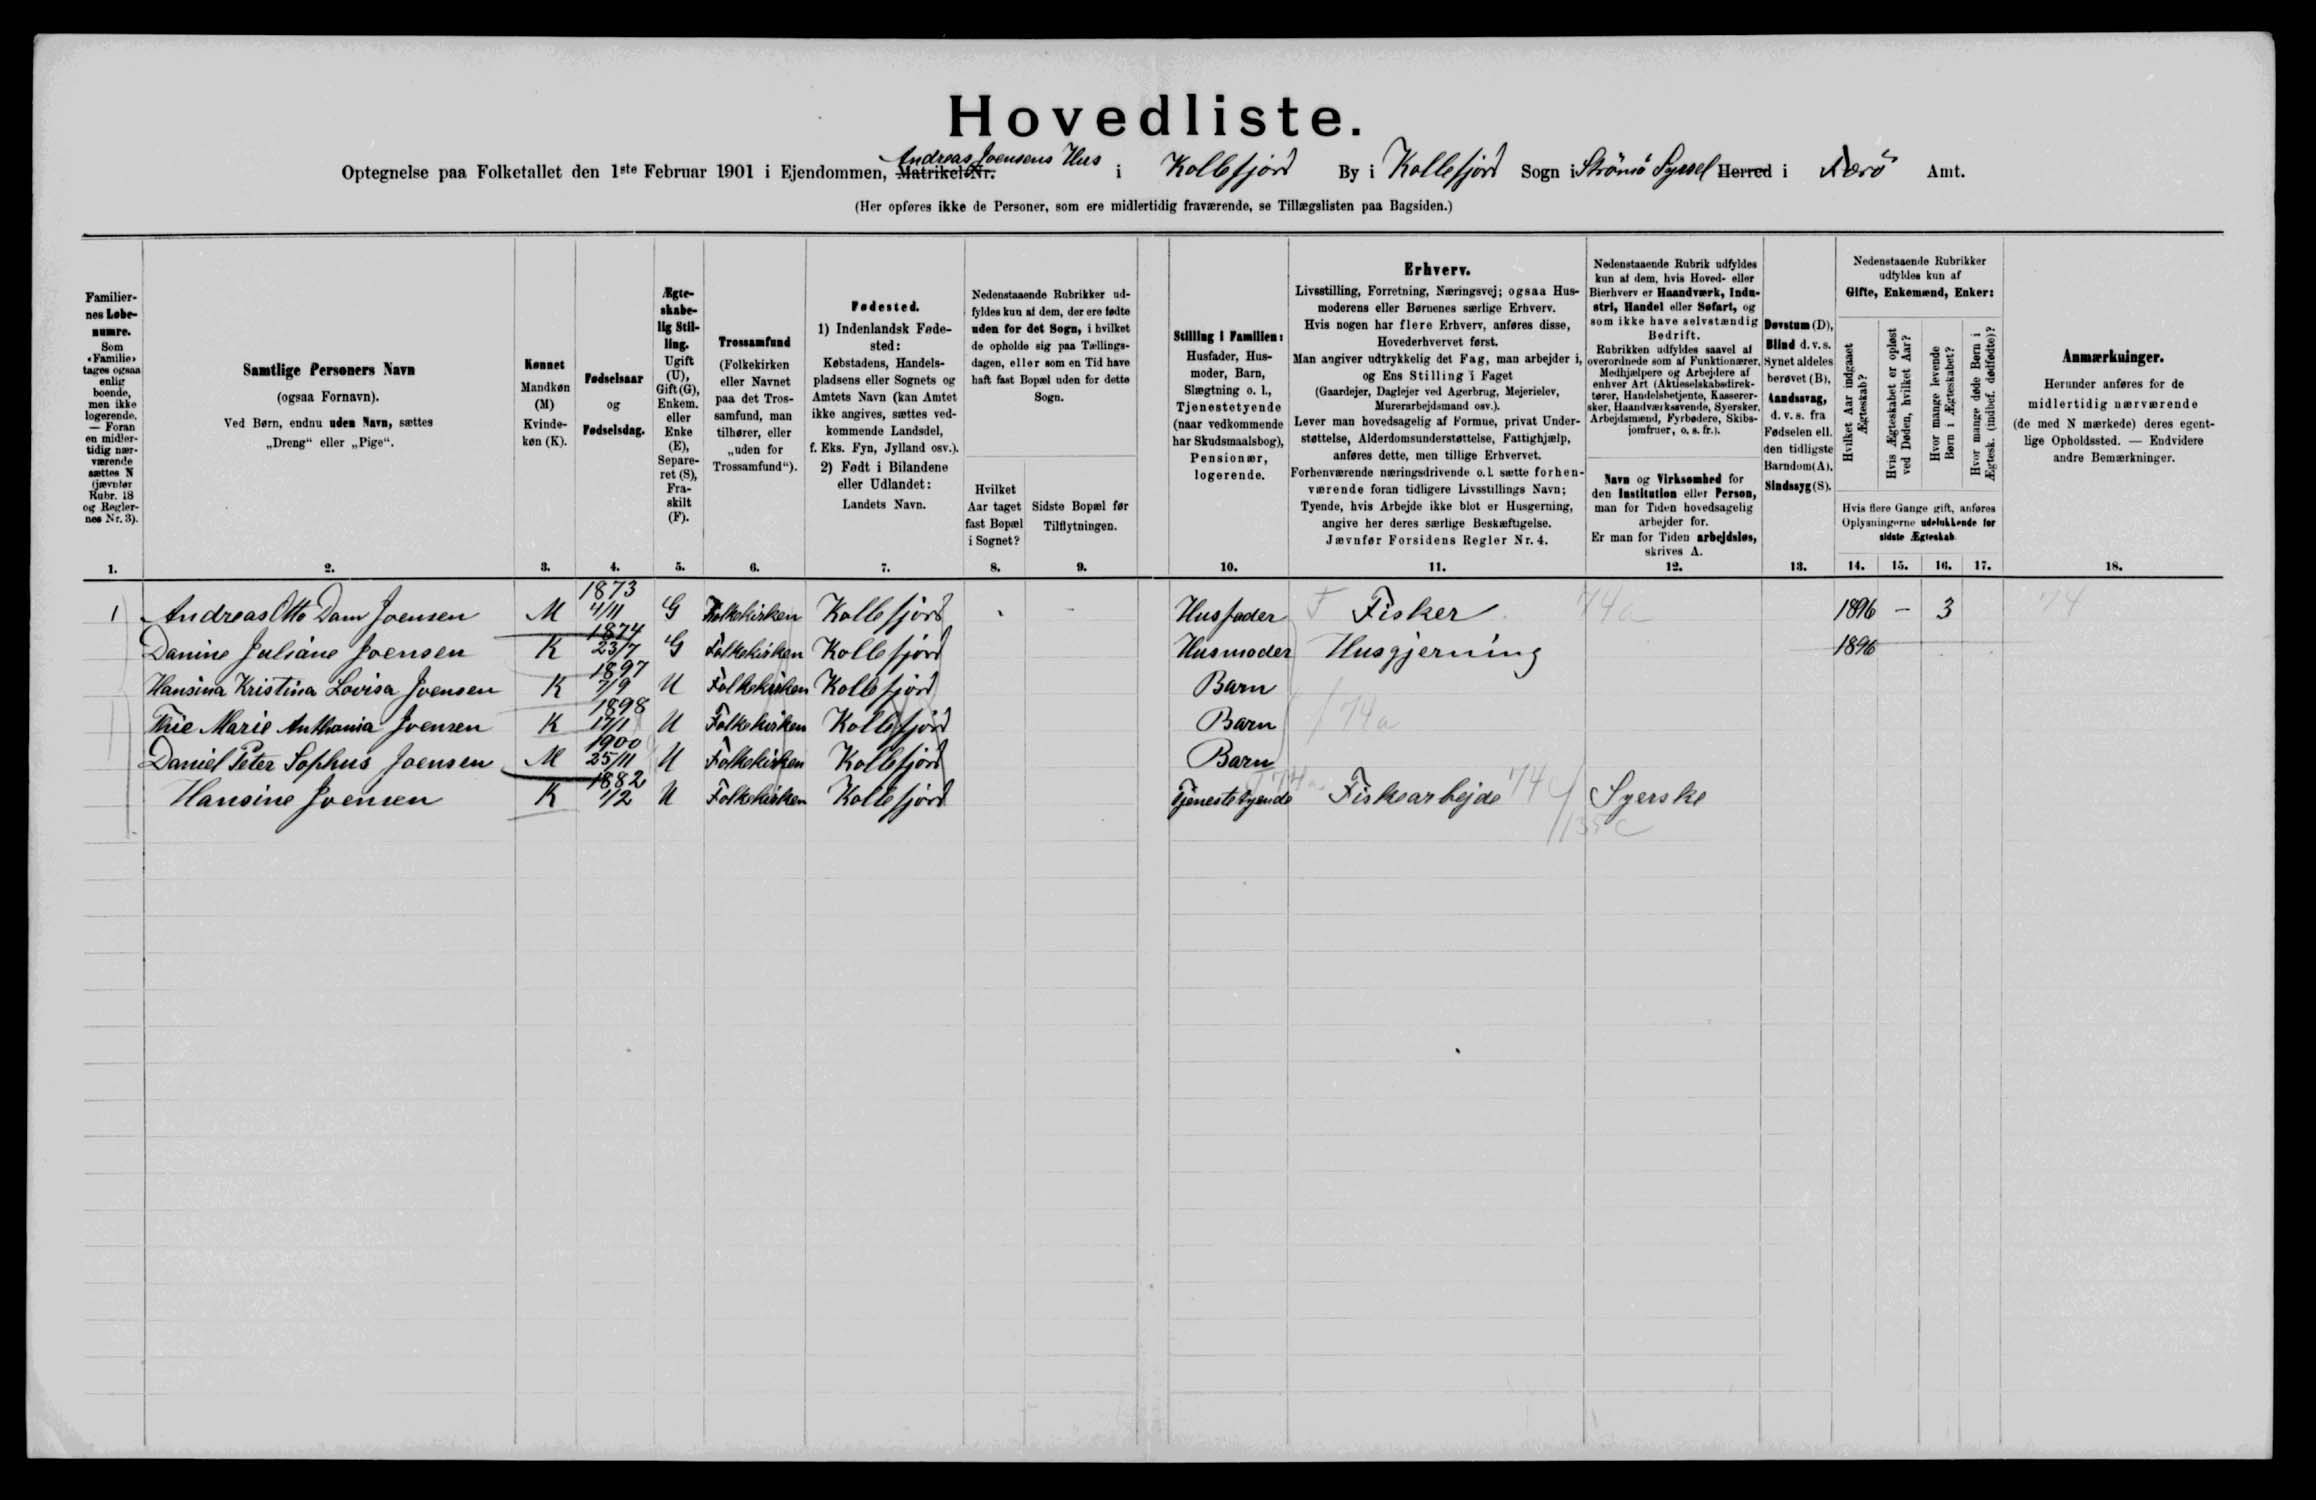 Hovedliste.
Optegnelse paa Folketallet den 1ste Februar 1901 i Ejendommen, Matrikel-Nr. Andreas Joensens Hus i Kollefjord By i Kollefjord Sogn i Strömö Syssel Herred i Færö Amt.
(Her opføres ikke de Personer, som ere midlertidig fraværende, se Tillægslisten paa Bagsiden.)
Familier-
nes Løbe-
numre.
Som
«Familie»
tages ogsaa
enlig
boende,
men ikke
logerende.
— Foran
en midler-
tidig nær-
værende
sættes N
(jævnfør
Rubr. 18
og Regler-
nes Nr. 3).
1.
Samtlige Personers Navn
(ogsaa Fornavn).
Ved Børn, endnu uden Navn, sættes
„Dreng“ eller „Pige“.
2.
Kønnet
Mandkøn
(M)
Kvinde-
køn (K).
3.
Fødselsaar
og
Fødselsdag.
4.
Ægte-
skabe-
lig Stil-
ling.
Ugift
(U),
Gift (G),
Enkem.
eller
Enke
(E),
Separe-
ret (S),
Fra-
skilt
(F).
5.
Trossamfund
(Folkekirken
eller Navnet
paa det Tros-
samfund, man
tilhører, eller
„uden for
Trossamfund“).
6.
Fødested.
1) Indenlandsk Føde-
sted:
Købstadens, Handels-
pladsens eller Sognets og
Amtets Navn (kan Amtet
ikke angives, sættes ved-
kommende Landsdel,
f. Eks. Fyn, Jylland osv.).
2) Født i Bilandene
eller Udlandet:
Landets Navn.
7.
Nedenstaaende Rubrikker ud-
fyldes kun af dem, der ere fødte
uden for det Sogn, i hvilket
de opholde sig paa Tællings-
dagen, eller som en Tid have
haft fast Bopæl uden for dette
Sogn.
Hvilket
Aar taget
fast Bopæl
i Sognet?
8.
Sidste Bopæl før
Tilflytningen.
9.
Stilling i Familien:
Husfader, Hus-
moder, Barn,
Slægtning o. l.,
Tjenestetyende
(naar vedkommende
har Skudsmaalsbog),
Pensionær,
logerende.
10.
Erhverv.
Livsstilling, Forretning, Næringsvej; ogsaa Hus-
moderens eller Børnenes særlige Erhverv.
Hvis nogen har flere Erhverv, anføres disse,
Hovederhvervet først.
Man angiver udtrykkelig det Fag, man arbejder i,
og Ens Stilling i Faget
(Gaardejer, Daglejer ved Agerbrug, Mejerielev,
Murerarbejdsmand osv.).
Lever man hovedsagelig af Formue, privat Under-
støttelse, Alderdomsunderstøttelse, Fattighjælp,
anføres dette, men tillige Erhvervet.
Forhenværende næringsdrivende o.l. sætte forhen-
værende foran tidligere Livsstillings Navn;
Tyende, hvis Arbejde ikke blot er Husgerning,
angive her deres særlige Beskæftigelse.
Jævnfør Forsidens Regler Nr. 4.
11.
Nedenstaaende Rubrik udfyldes
kun af dem, hvis Hoved- eller
Bierhverv er Haandværk, Indu-
stri, Handel eller Søfart, og
som ikke have selvstændig
Bedrift.
Rubrikken udfyldes saavel af
overordnede som af Funktionærer,
Medhjælpere og Arbejdere af
enhver Art (Aktieselskabsdirek-
tører, Handelsbetjente, Kasserer-
sker, Haandværkssvende, Syersker,
Arbejdsmænd, Fyrbødere, Skibs-
jomfruer, o. s. fr.).
Navn og Virksomhed for
den Institution eller Person,
man for Tiden hovedsagelig
arbejder for.
Er man for Tiden arbejdsløs,
skrives A.
12.
Døvstum (D),
Blind d. v. s.
Synet aldeles
berøvet (B),
Aandssvag,
d. v. s. fra
Fødselen ell.
den tidligste
Barndom (A),
Sindssyg (S).
13.
Nedenstaaende Rubrikker
udfyldes kun af
Gifte, Enkemænd, Enker:
Hvilket Aar indgaaet
Ægteskab?
Hvis Ægteskabet er opløst
ved Døden, hvilket Aar?
Hvor mange levende
Børn i Ægteskabet?
Hvor mange døde Børn i
Ægtesk. (indbef. dødfødte)?
Hvis flere Gange gift, anføres
Oplysningerne udelukkende for
sidste Ægteskab.
14. 15. 16. 17.
Anmærkninger.
Herunder anføres for de
midlertidig nærværende
(de med N mærkede) deres egent-
lige Opholdssted. — Endvidere
andre Bemærkninger.
18.
1 Andreas Otto Dam Joensen M 1873 4/11 G Folkekirken Kollefjord - Husfader F Fisker 74a 1896 — 3 74
Danine Juliane Joensen K 1874 23/7 G Folkekirken Kollefjord Husmoder Husgjerning 1896
Hansina Kristina Lovisa Joensen K 1897 7/9 U Folkekirken Kollefjord Barn
Marie Anthania Joensen K 1898 17/1 U Folkekirken Kollefjord Barn 74a
Daniel Peter Sophus Joensen M 1900 25/11 U Folkekirken Kollefjord Barn
Hansine Joensen K 1882 1/2 U Folkekirken Kollefjord Tjenestetyende Fiskearbejde 74c Syerske
135c